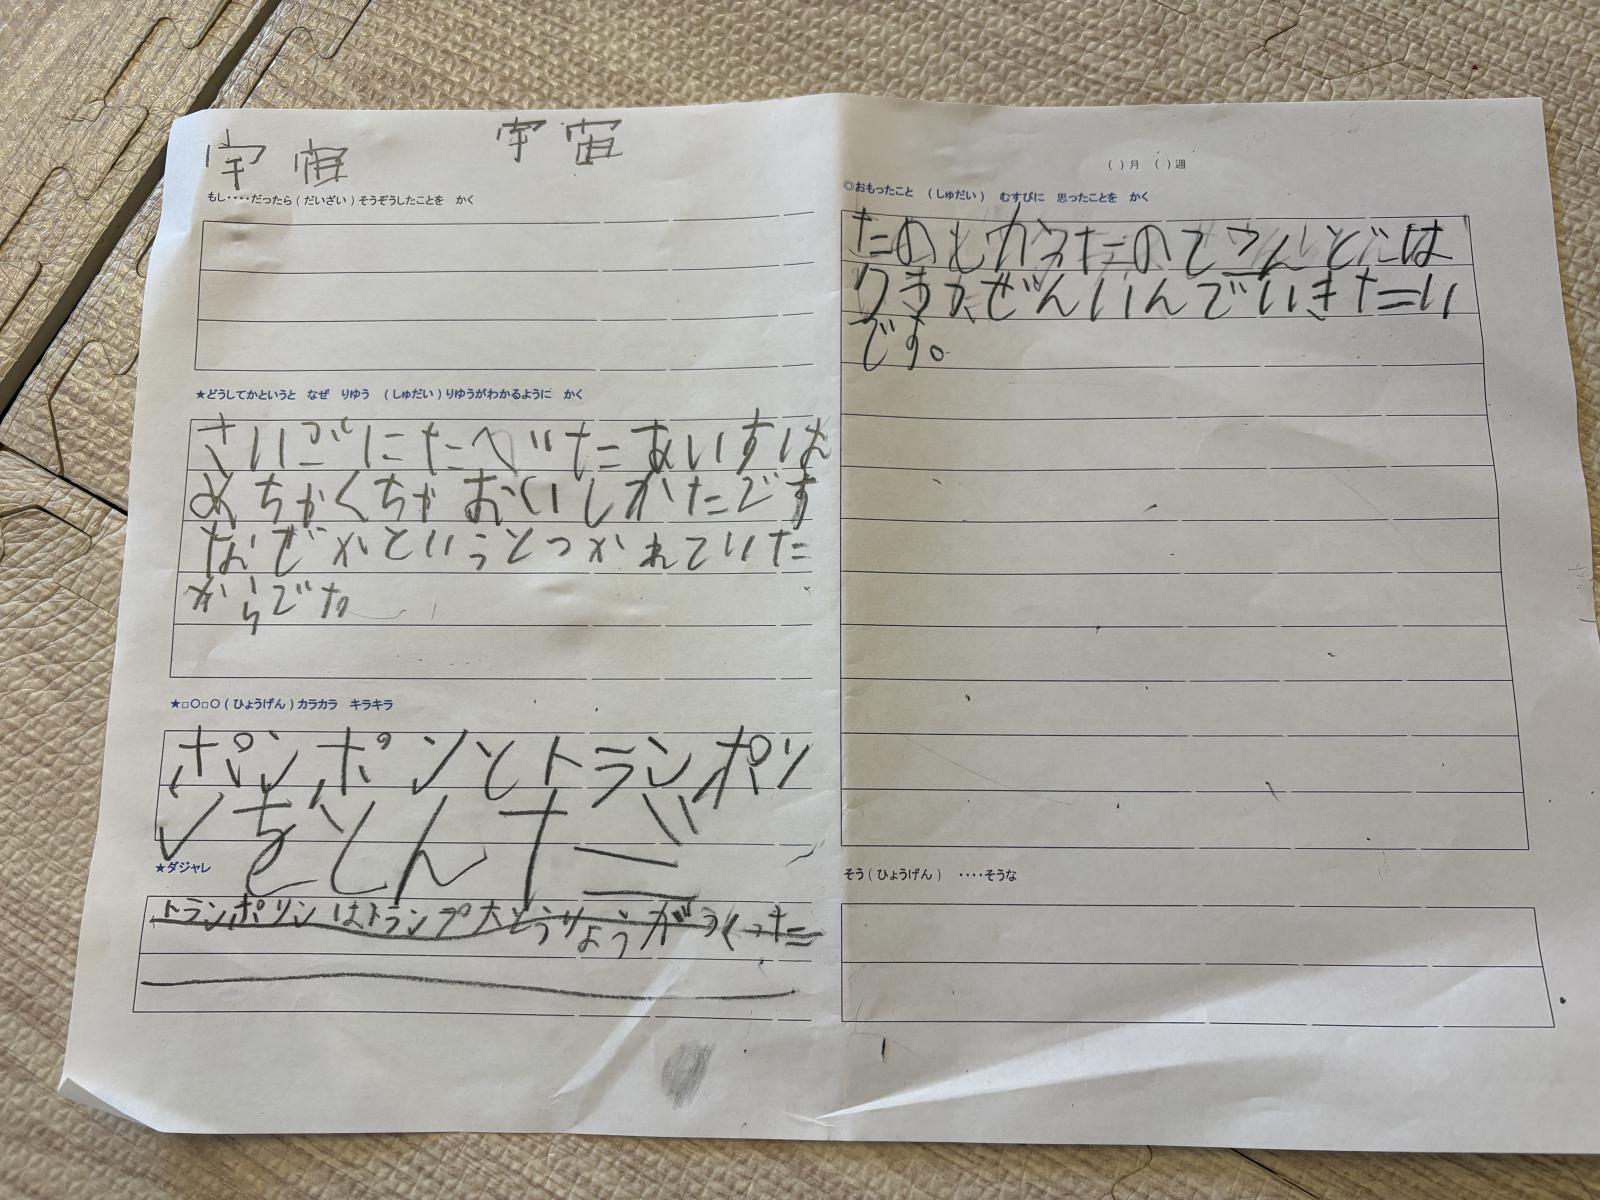 宇宙 宇宙
もし・・・・だったら(だいざい)そうぞうしたことを かく
★どうしてかというと なぜ りゆう (しゅだい)りゆうがわかるように かく
さいごにたべたあいすは
めちかくちかおいしかたです
なぜかというとつかれていた
からでた
★□〇□〇(ひょうげん)カラカラ キラキラ
ポンポンとトランポリ
ンをとんだ
★ダジャレ
トランポリンはトランプ大とうりょうがつくった
( )月 ( )週
◎おもったこと (しゅだい) むすびに 思ったことを かく
たのしかたのでこんどは
かぜんいんでいきたい
です。
そう(ひょうげん) ・・・・そうな